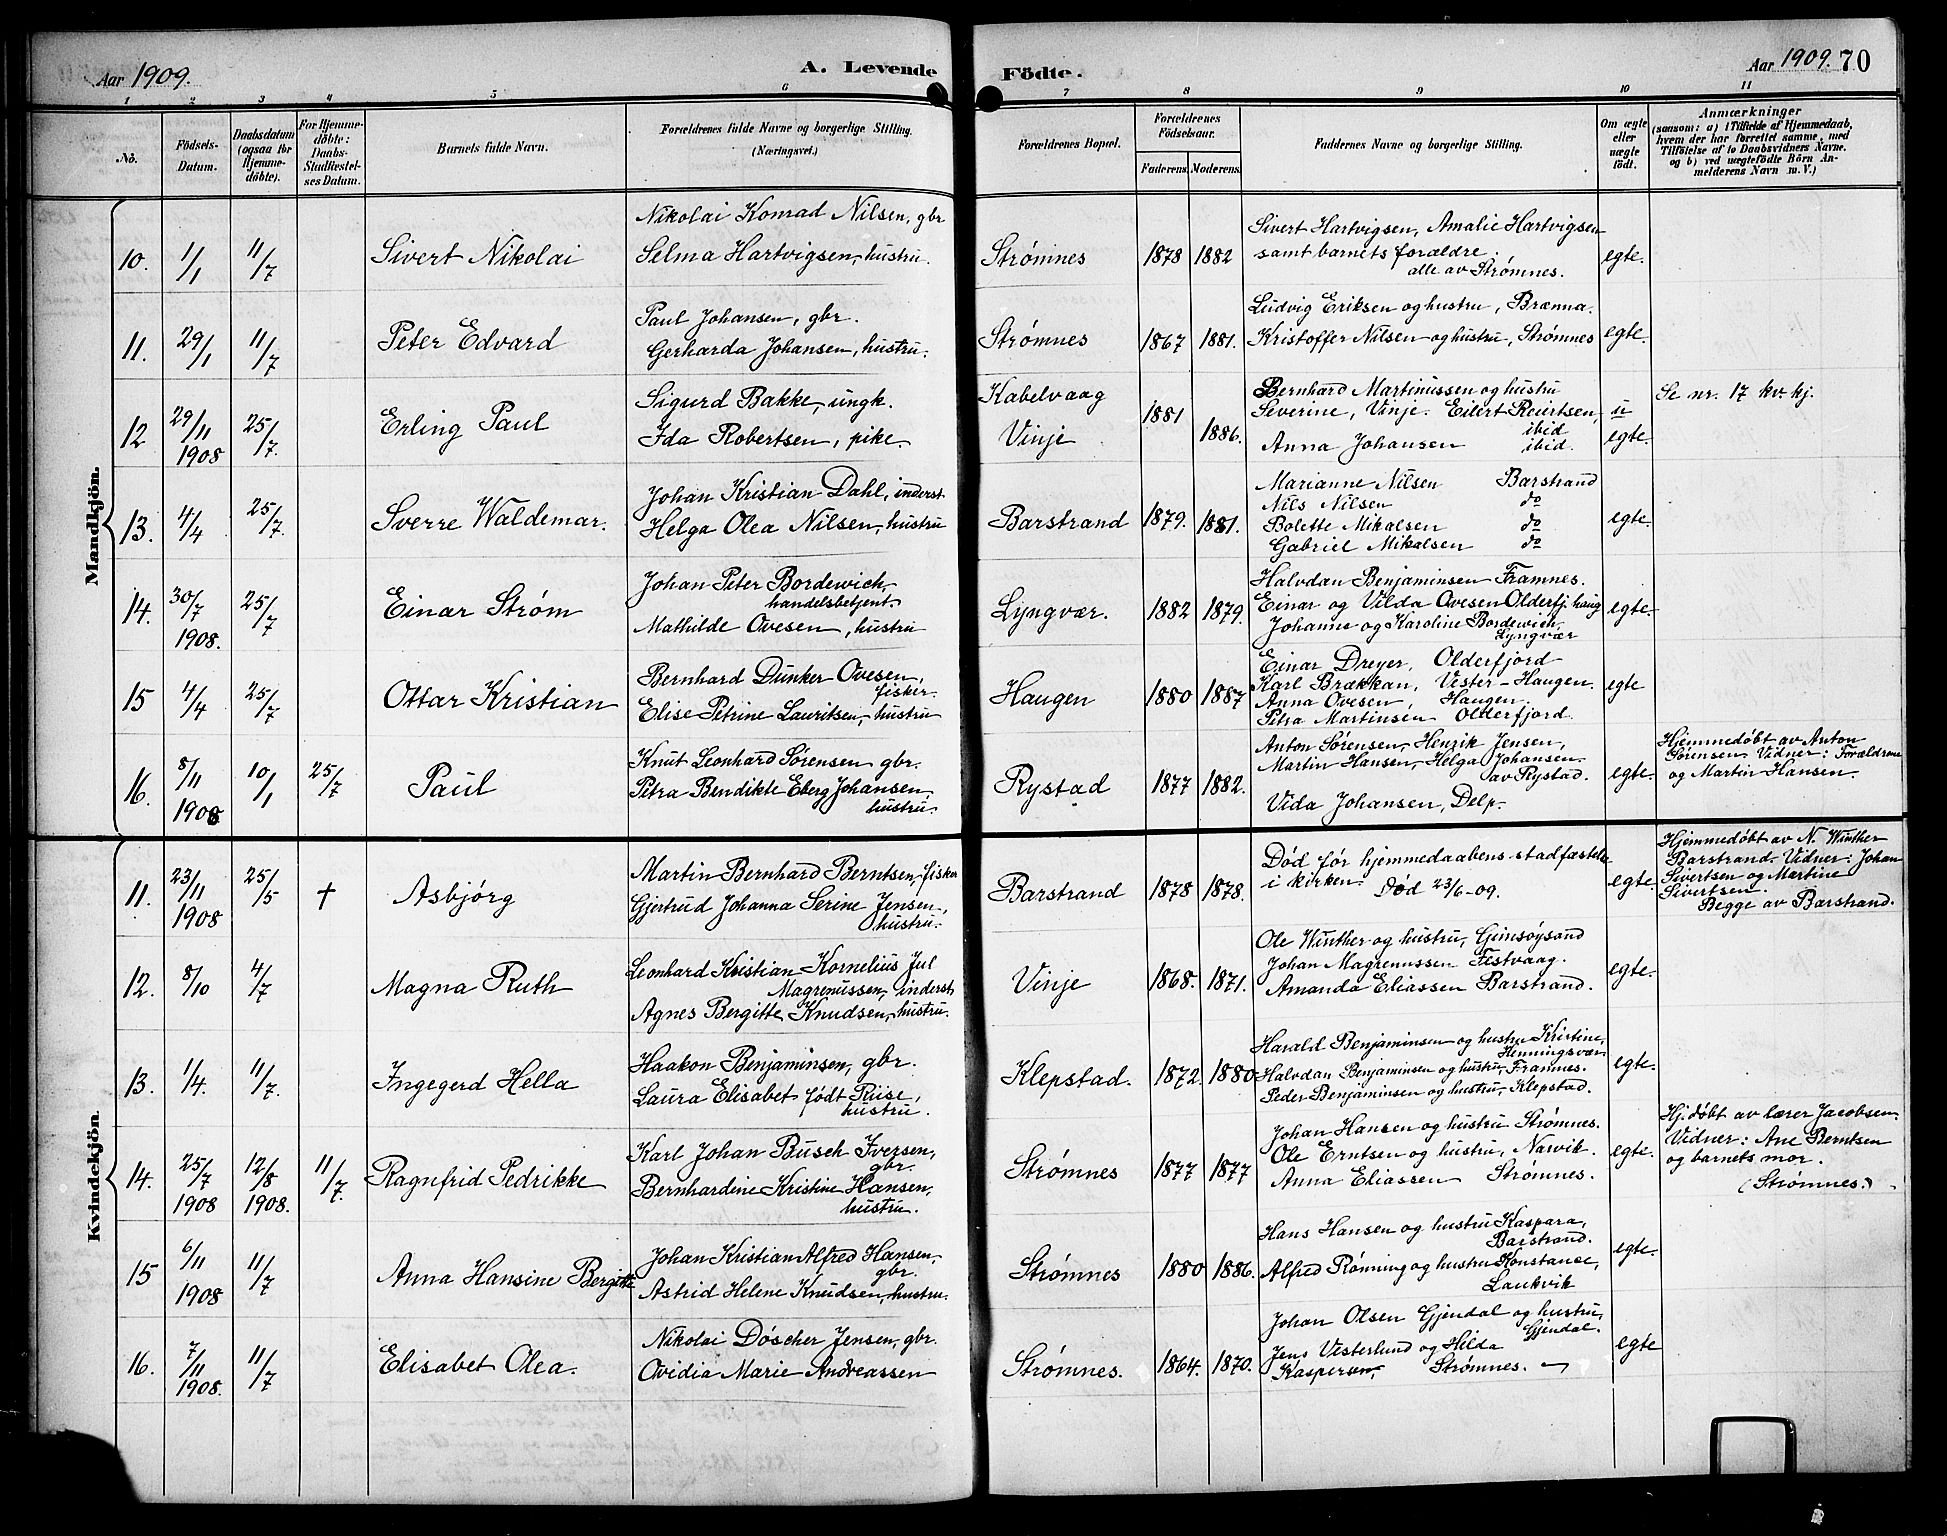 Aar 1909. A. Levende Födte. Aar 1909. 70
1 2 3 4 5 6 7 8 9 10 11
No.
Födsels-
Datum.
Daabsdatum
(ogsaa for
Hjemme-
döbte).
For Hjemme-
döbte:
Daabs-
Stadfæstel-
ses Datum.
Barnets fulde Navn.
Forældrenes fulde Navne og borgerlige Stilling.
(Næringsvei.)
Forældrenes Bopæl.
Forældrenes
Födselsaar.
Faderens. Moderens.
Faddernes Navne og borgerlige Stilling.
Om ægte
eller
uægte
födt.
Anmærkninger
(saasom: a) i Tilfælde af Hjemmedaab,
hvem der har forrettet samme, med
Tilföielse af to Daabsvidners Navne.
og b) ved uægtefödte Börn An-
melderens Navn m. V.)
Mandkjön.
10. 1/1 11/7 Sivert Nikolai
Nikolai Konrad Nilsen, gbr
Selma Hartvigsen, hustru.
Strømnes 1878 1882
Sivert Hartvigsen, Amalie Hartvigsen
samt barnets forældre.
alle av Strømnes.
egte.
11. 29/1 11/7 Peter Edvard
Paul Johansen, gbr.
Gerharda Johansen, hustru.
Strømnes 1867 1881.
Ludvig Eriksen og hustru, Brænna.
Kristoffer Nilsen og hustru, Strømnes
egte.
12 29/11 1908 25/7. Erling Paul
Sigurd Bakke, ungk.
Ida Robertsen, pike.
Kabelvaag
Vinje
1881 1886.
Bernhard Martinussen og hustru
Severine, Vinje. Eilert Reiertsen,
ibid
Anna Johansen ibid.
u
egte.
Se nr. 17 kv. kj.
13. 4/4 25/7. Sverre Waldemar.
Johan Kristian Dahl, inderst
Helga Olea Nilsen, hustru
Barstrand 1879. 1881.
Marianne Nilsen Barstrand
Nils Nilsen do
Bolette Mikalsen do
Gabriel Mikalsen do
egte.
14. 30/7 1908. 25/7 Einar Strøm
Johan Peter Bordewich,
handelsbetjent.
Mathilde Ovesen, hustru
Lyngvær. 1882 1879.
Halvdan Benjaminsen Framnes.
Einar og Vilda Ovesen Olderfj. haug
Johanne og Karoline Bordewich,
Lyngvær
egte.
15 4/4 25/7 Ottar Kristian
Bernhard Dunker Ovesen,
fisker.
Elise Petrine Lauritsen, hustru
Haugen 1880 1887
Einar Dreyer, Olderfjord
Karl Brækkan, Vester-Haugen.
Anna Ovesen, Haugen.
Petra Martinsen Olderfjord.
egte
16. 8/11 1908 10/1 25/7 Paul
Knut Leonhard Sørensen gbr.
Petra Bendikte Eberg Johansen,
hustru.
Rystad 1877 1882.
Anton Sørensen, Henrik Jensen,
Martin Hansen, Helga Johansen
av Rystad.
Vida Johansen, Delp.
egte.
Hjemmedøbt av Anton
Sørensen Vidner: Forældrene
og Martin Hansen.
Kvindekjön.
11. 23/11 1908 25/5 † Asbjørg
Martin Bernhard Berntsen, fisker
Gjertrud Johanna Serine Jensen,
hustru.
Barstrand 1878 1878.
Død før hjemmedaabens stadfæstelse
i kirken. Død 23/6-09.
egte.
Hjemmedøbt av N. Winther
Barstrand. Vidner: Johan
Sivertsen og Martine
Sivertsen.
Begge av Barstrand.
12. 8/10 4/7 Magna Ruth
Leonhard Kristian Kornelius Jul
Magrenussen, inderst
Agnes Bergitte Knudsen, hustru.
Vinje 1868. 1871.
Ole Winther og hustru, Gimsøysand
Johan Magrenussen Festvaag.
Amanda Eliassen Barstrand.
egte.
13. 1/4. 11/7. Ingegerd Hella
Haakon Benjaminsen, gbr.
Laura Elisabet født Riise,
hustru.
Klepstad. 1872. 1880
Harald Benjaminsen og hustru Kristine,
Henningsvær
Halvdan Benjaminsen og hustru, Framnes.
Peder Benjaminsen og hustru, Klepstad.
egte.
14. 25/7 1908 12/8 1908. 11/7. Ragnfrid Pedrikke
Karl Johan Busch Iversen,
gbr.
Bernhardine Kristine Hansen,
hustru.
Strømnes 1877 1877
Johan Hansen og hustru Strømnes.
Ole Erntsen og hustru, Narvik.
Anna Eliassen Strømnes.
egte.
Hj. døbt av lærer Jacobsen.
Vidner: Ane Berntsen
og barnets mor.
(Strømnes.)
15 6/11 1908 11/7 Anna Hansine Bergitte
Johan Kristian Alfred Hansen,
gbr.
Astrid Helene Knudsen, hustru.
Strømnes 1880 1886.
Hans Hansen og hustru Kaspara,
Barstrand.
Alfred Rønning og hustru Konstance,
Laukvik
egte.
16. 7/11 1908. 11/7 Elisabet Olea.
Nikolai Døscher Jensen, gbr.
Ovidia Marie Andreassen
Strømnes. 1864. 1870.
Johan Olsen Gjendal og hustru,
Gjendal.
Jens Vesterlund og Hilda
Kaspersen, Strømnes.
egte